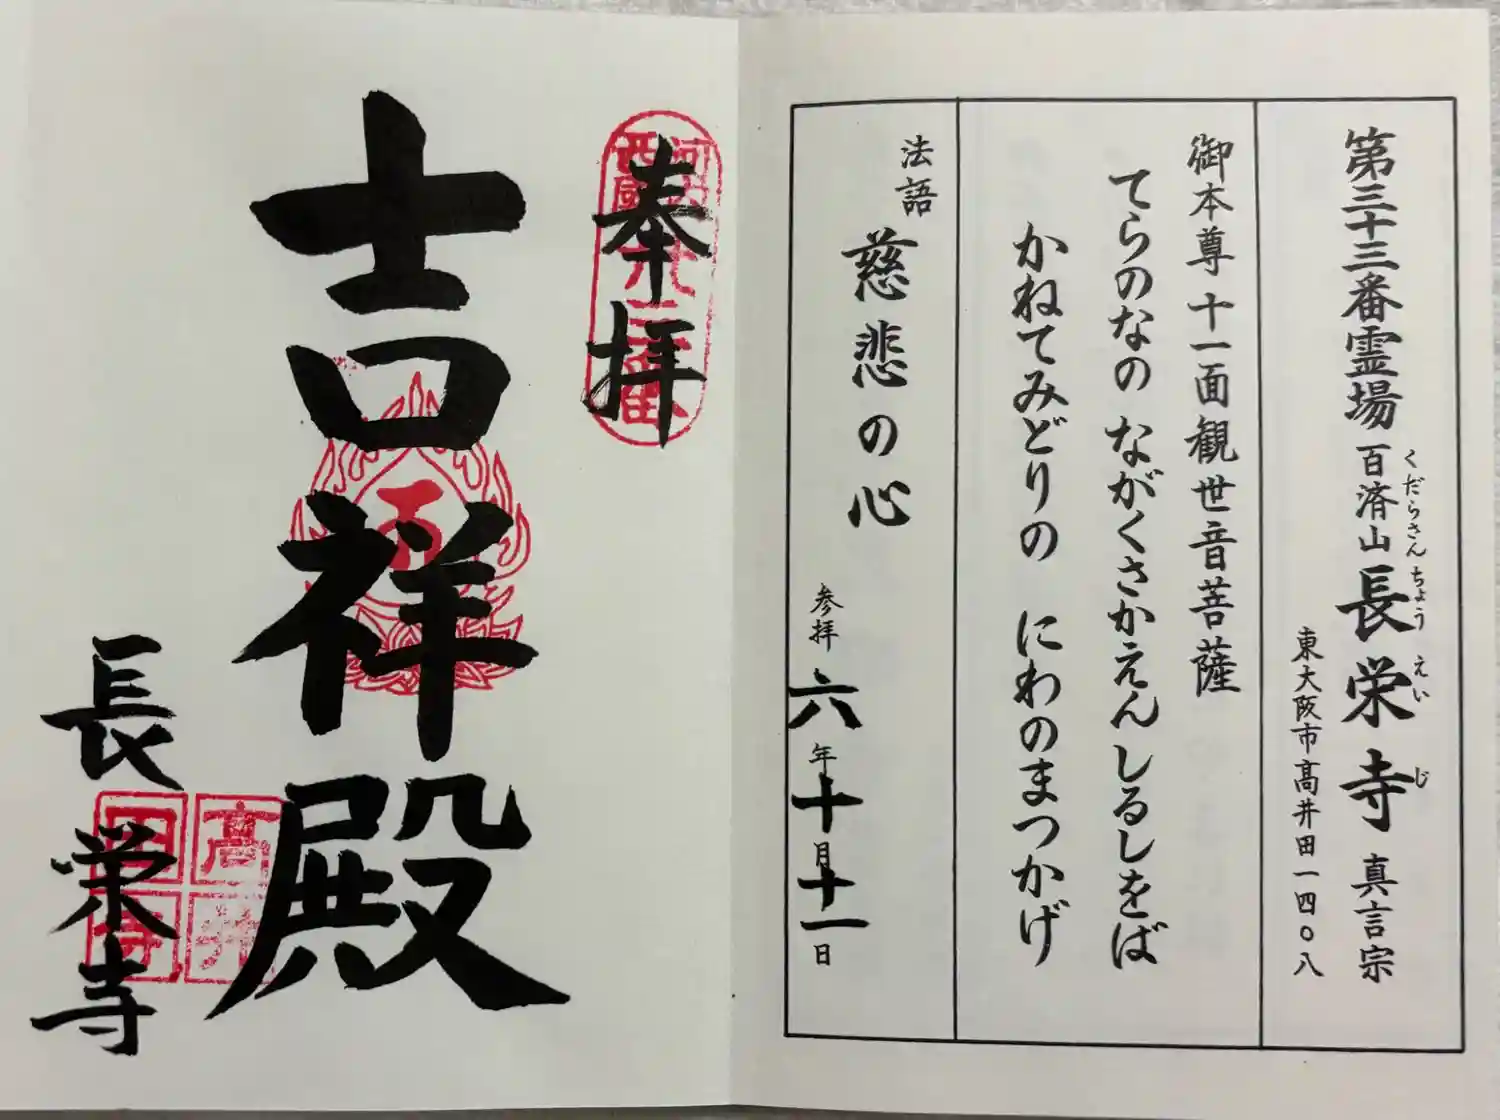 第三十三番霊場 百済山 長栄寺 真言宗
くだらさん ちょう えい じ
東大阪市高井田一四〇八
御本尊 十一面観世音菩薩
てらのなの ながくさかえんしるしをば
かねてみどりの にわのまつかげ
法語
慈悲の心
参拝 六年十月十一日
奉拝
吉祥殿
長栄寺